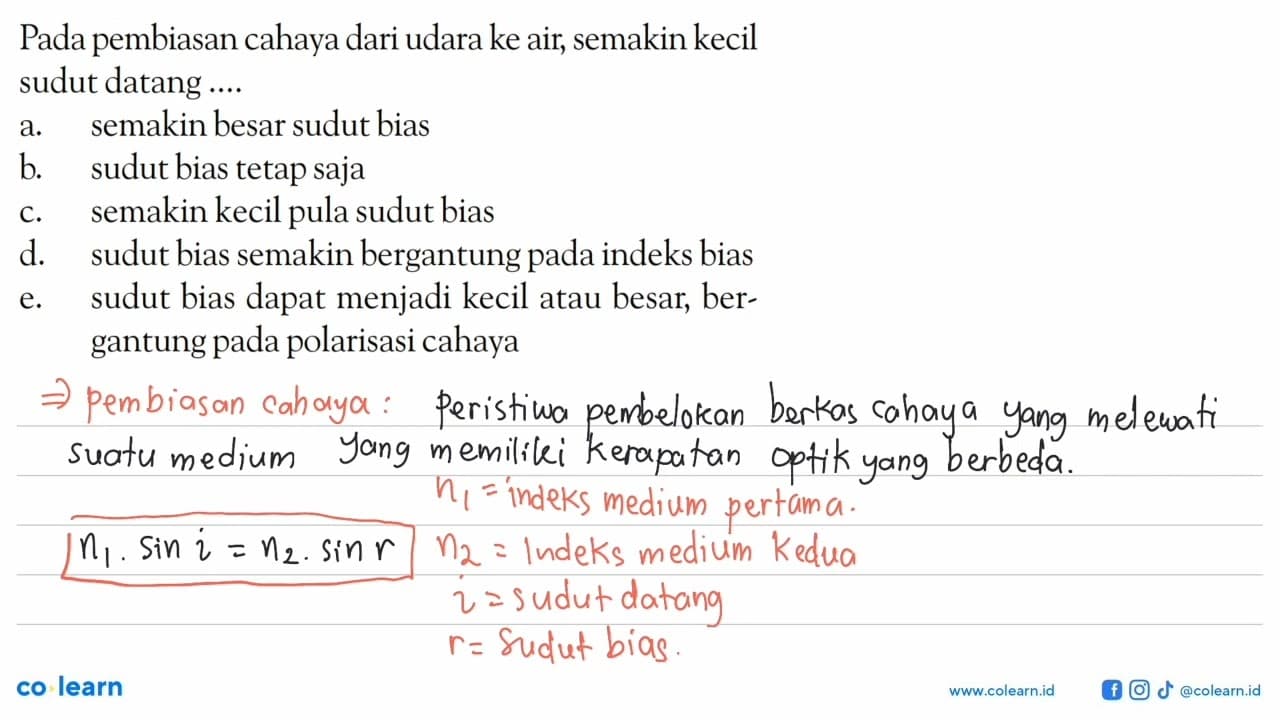 Pada pembiasan cahaya dari udara ke air, semakin kecil
sudut datang ....
a. semakin besar sudut bias
b. sudut bias tetap saja
c. semakin kecil pula sudut bias
d. sudut bias semakin bergantung pada indeks bias
e. sudut bias dapat menjadi kecil atau besar, ber-
gantung pada polarisasi cahaya
⇒ pembiasan cahaya : Peristiwa pembelokan berkas cahaya yang melewati
suatu medium yang memiliki kerapatan optik yang berbeda.
n₁ = indeks medium pertama.
n₁ . sin i = n₂ . sin r n₂ = Indeks medium kedua
i = sudut datang
r = sudut bias.
co learn www.colearn.id @colearn.id